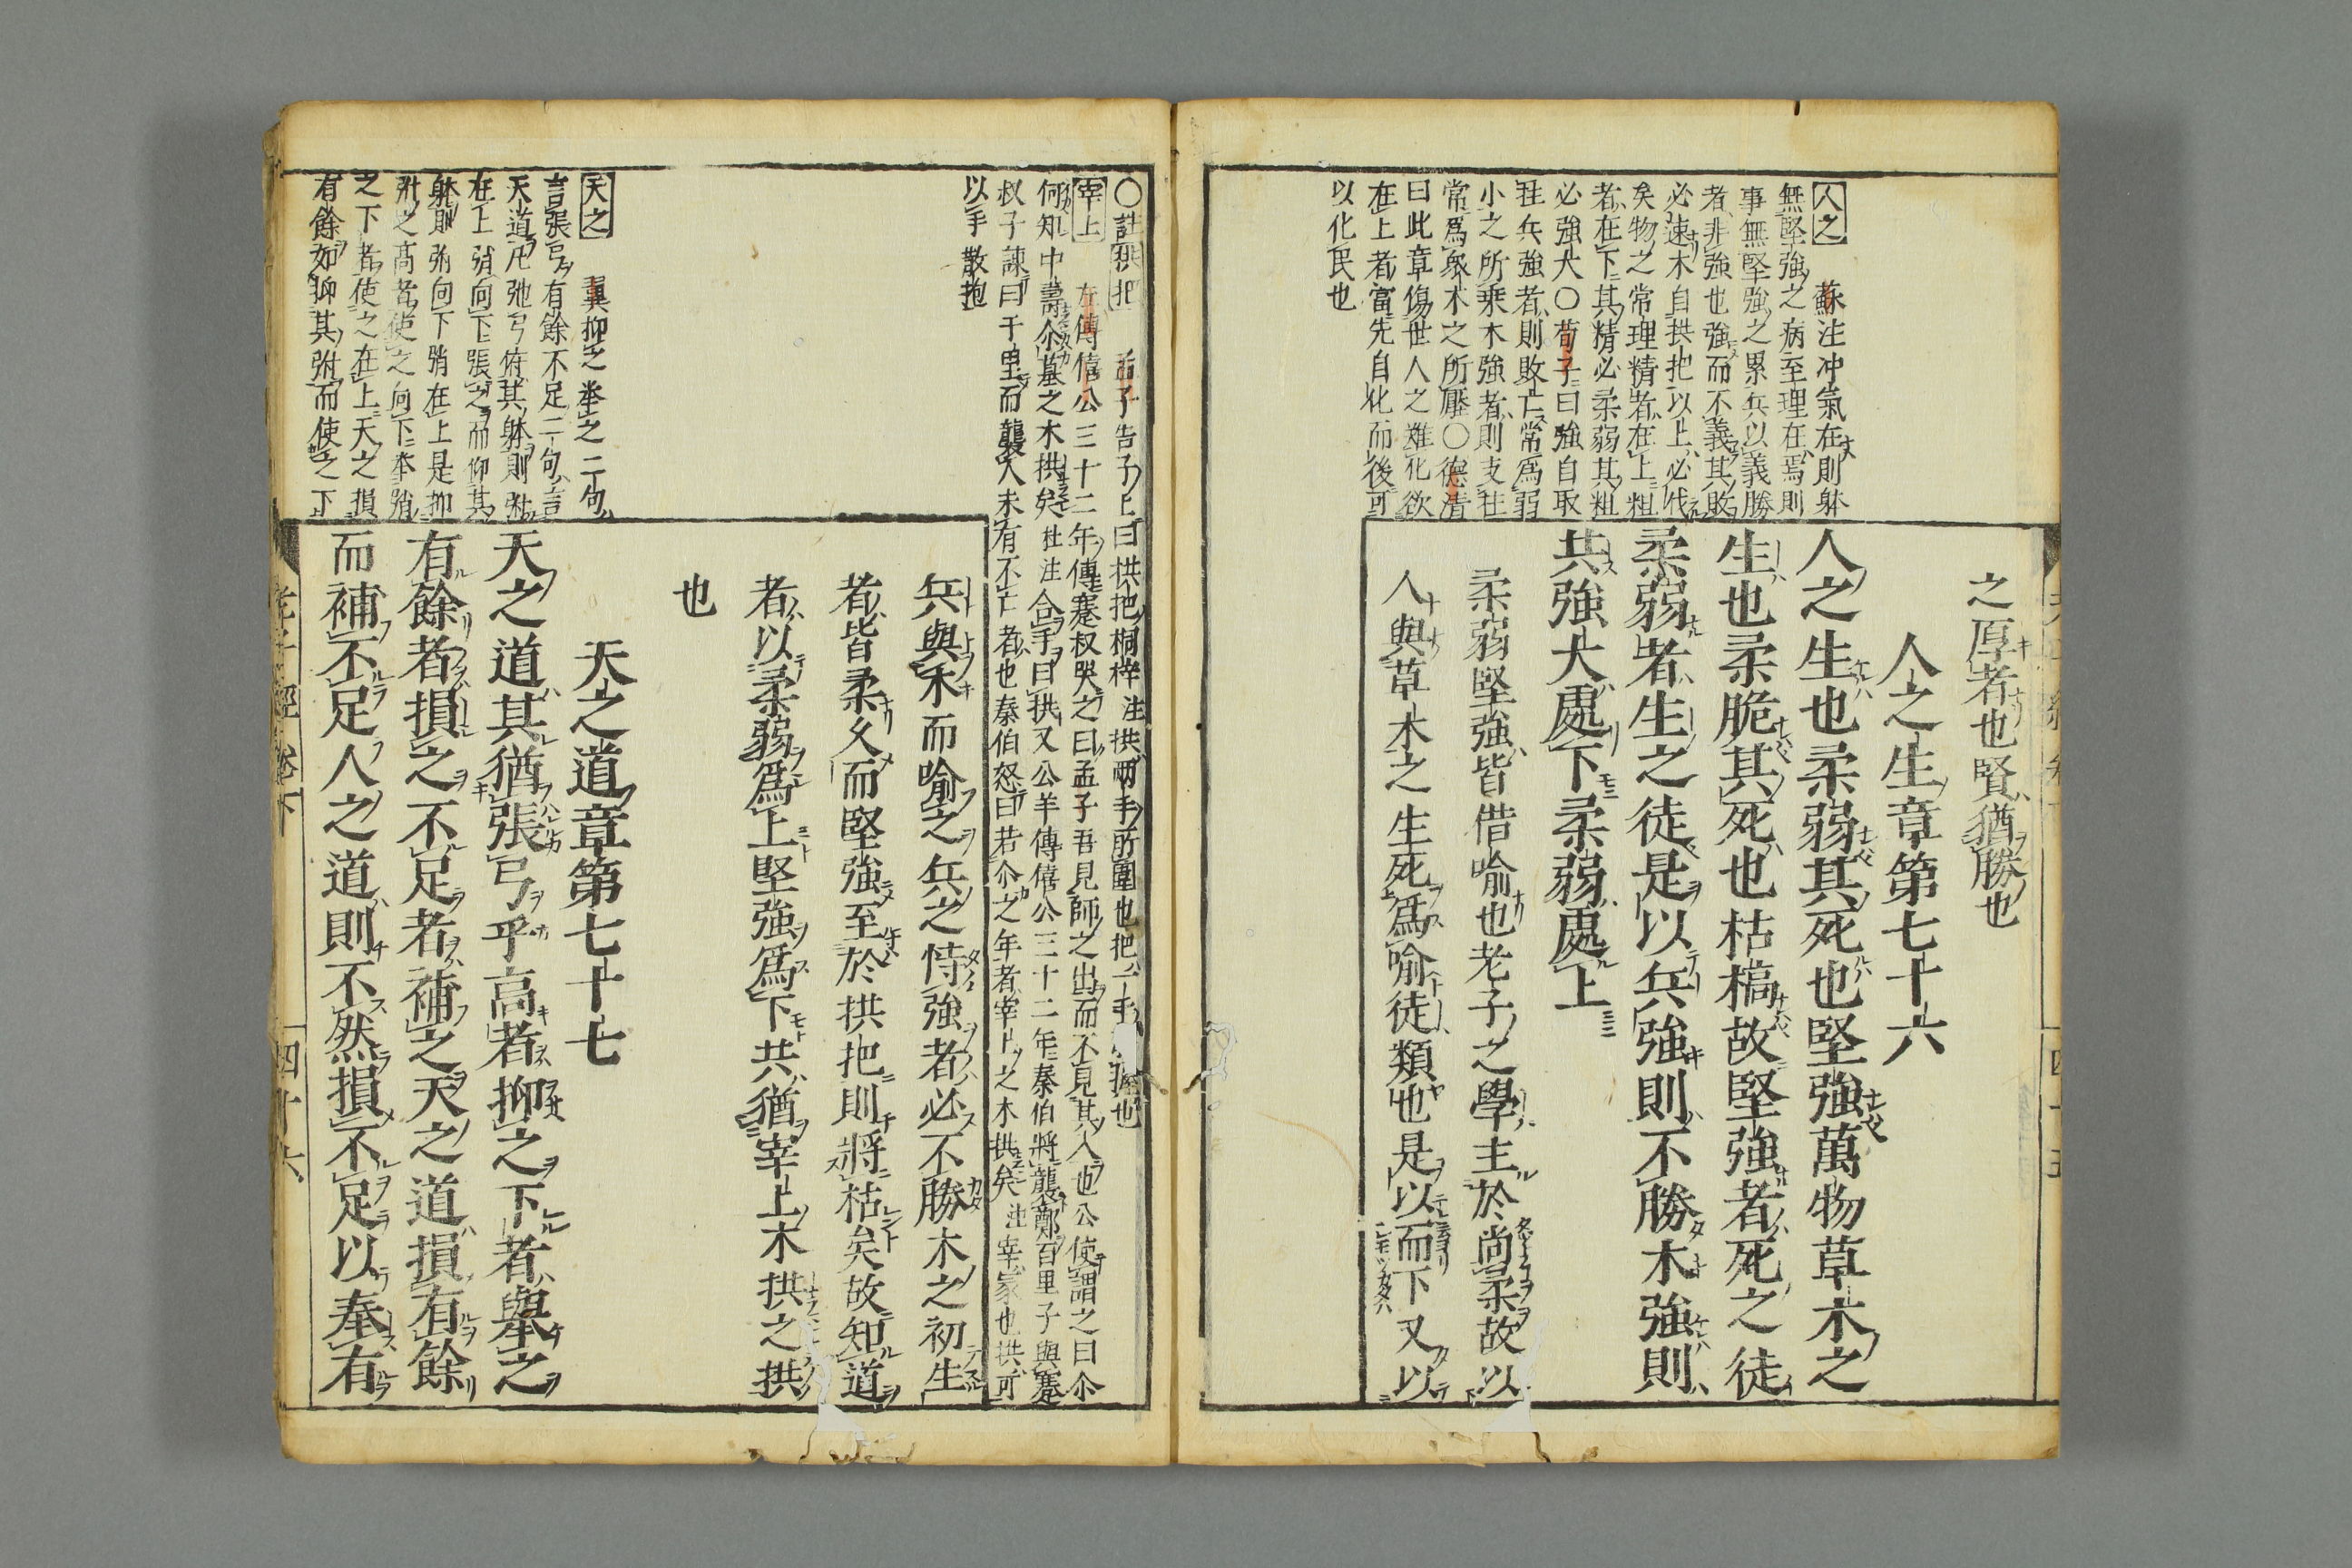 之厚者也賢猶勝也
人之生章第七十六
人之生也柔弱其死也堅強萬物草木之
生也柔脆其死也枯槁故堅強者死之徒
柔弱者生之徒是以兵強則不勝木強則
共強大處下柔弱處上
柔弱堅強皆借喻也老子之學主於尚柔故以
人與草木之生死爲喻徒類也是以而下又以
人之 蘇注冲氣在則躰
無堅強之病至理在焉則
事無堅強之累兵以義勝
者非強也強而不義其敗
必速木自拱把以上必伐
矣物之常理精者在上粗
者在下其精必柔弱其粗
必強大〇荀子曰強自取
柱兵強者則敗亡常爲弱
小之所乗木強者則支柱
常爲衆木之所壓〇德清
曰此章傷世人之難化欲
在上者當先自化而後可
以化民也
〇註拱把 孟子告子上曰拱把桐梓 注拱兩手所圍也把一手 握也
宰上 左傳僖公三十二年傳蹇叔哭之曰孟子吾見師之出而不見其入也公使謂之曰尒
何知中壽尒墓之木拱矣 杜注合手曰拱又公羊傳僖公三十二年秦伯將襲鄭百里子與蹇
叔子諫曰千里而襲人未有不亡者也秦伯怒曰若尒之年者宰上之木拱矣 注宰家也拱可
以手散抱
兵與木而喻之兵之恃強者必不勝木之初生
者皆柔久而堅強至於拱把則將枯矣故知道
者以柔弱爲上堅強爲下共猶宰上木拱之拱
也
天之道章第七十七
天之道其猶張弓乎高者抑之下者擧之
有餘者損之不足者補之天之道損有餘
而補不足人之道則不然損不足以奉有
天之 翼抑之擧之二句
言張弓有餘不足二句言
天道凡弛弓俯其躰則弣
在上弰向下張之而仰其
躰則弣向下弰在上是抑
弣之高者使之向下擧弰
之下者使之在上天之損
有餘如抑其弣而使之下
老子經卷下
四十六